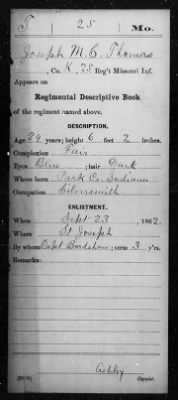 T 25 Mo.
Joseph M. C. Thomas
, Co. K, 25 Reg't Missouri Inf.
Appears on
Regimental Descriptive Book
of the regiment named above.
DESCRIPTION.
Age 24 years; height 6 feet 2 inches.
Complexion Fair
Eyes Blue ; hair Dark
Where born Park Co. Indiana
Occupation Silversmith
ENLISTMENT.
When Sept 23 , 1862.
Where St Joseph
By whom Capt Bradshaw; term 3 y'rs.
Remarks:
Ashley
Copyist.